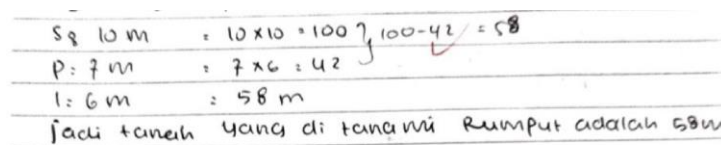 S8 10 m : 10 x 10 = 100 } 100-42 = 58
P: 7 m : 7 x 6 : 42
l: 6 m : 58 m
jadi tanah yang di tanami Rumput adalah 58m